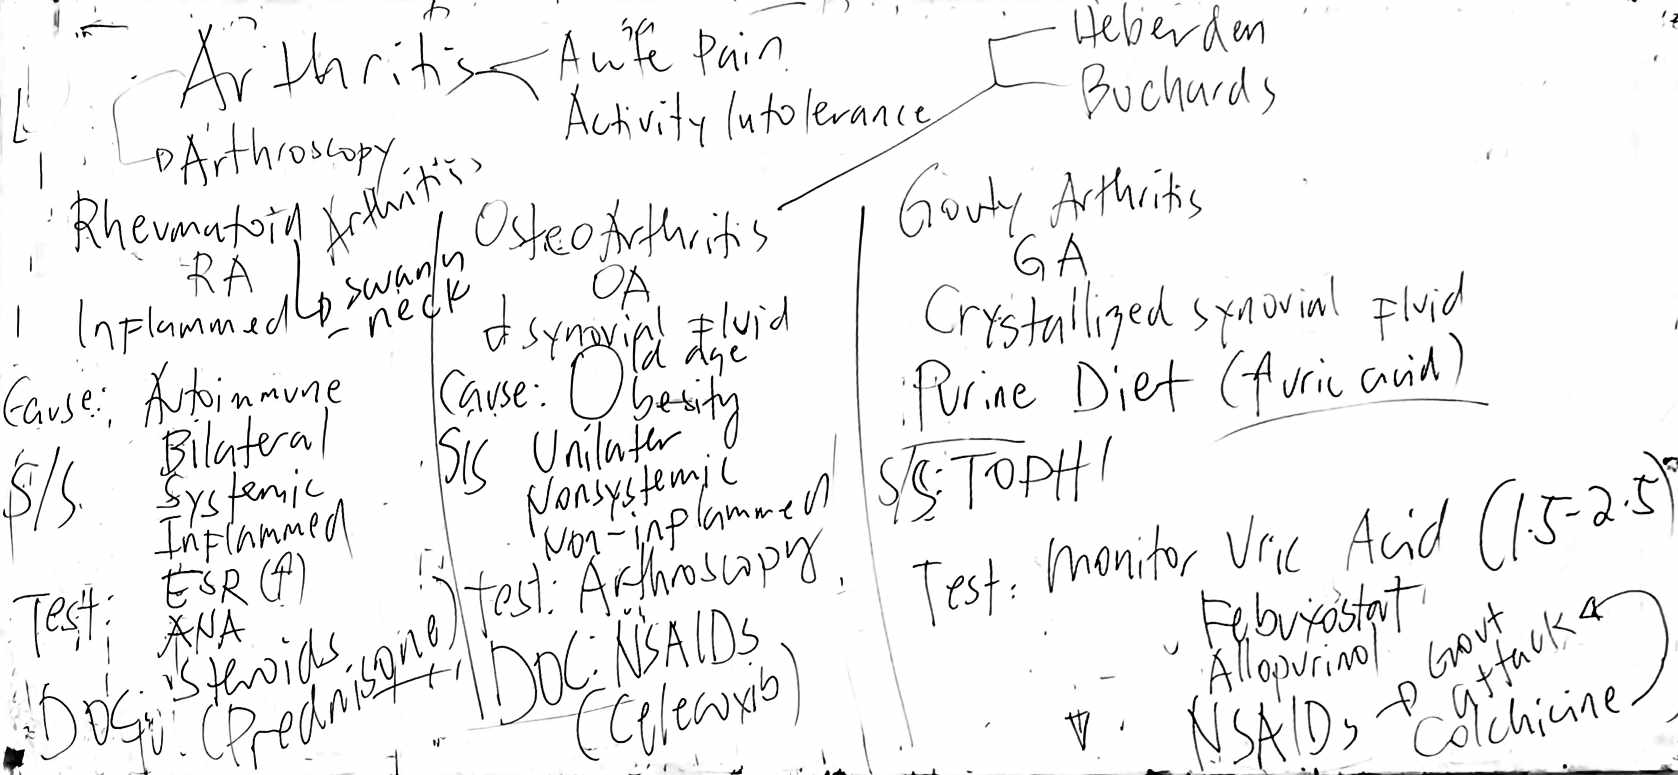 Arthritis
Acute Pain
Activity Intolerance
Heberden
Buchards
Arthroscopy
Rheumatoid Arthritis
RA
swan
neck
Inflammed
Cause: Autoimmune
S/S. Bilateral
Systemic
Inflammed
Test: ESR (↑)
ANA
DOC: Steroids
(Prednisone)
OsteoArthritis
OA
↓ synovial Fluid
Cause: Old age
Obesity
S/S Unilater
Nonsystemic
Non-inflammed
Test: Arthroscopy
DOC: NSAIDs
(Celecoxib)
Gouty Arthritis
GA
Crystallized synovial Fluid
Purine Diet (↑ uric acid)
S/S: TOPHI
Test: Monitor Uric Acid (1.5-2.5)
Febuxostat
Allopurinol
NSAIDs → Gout
attack
Colchicine